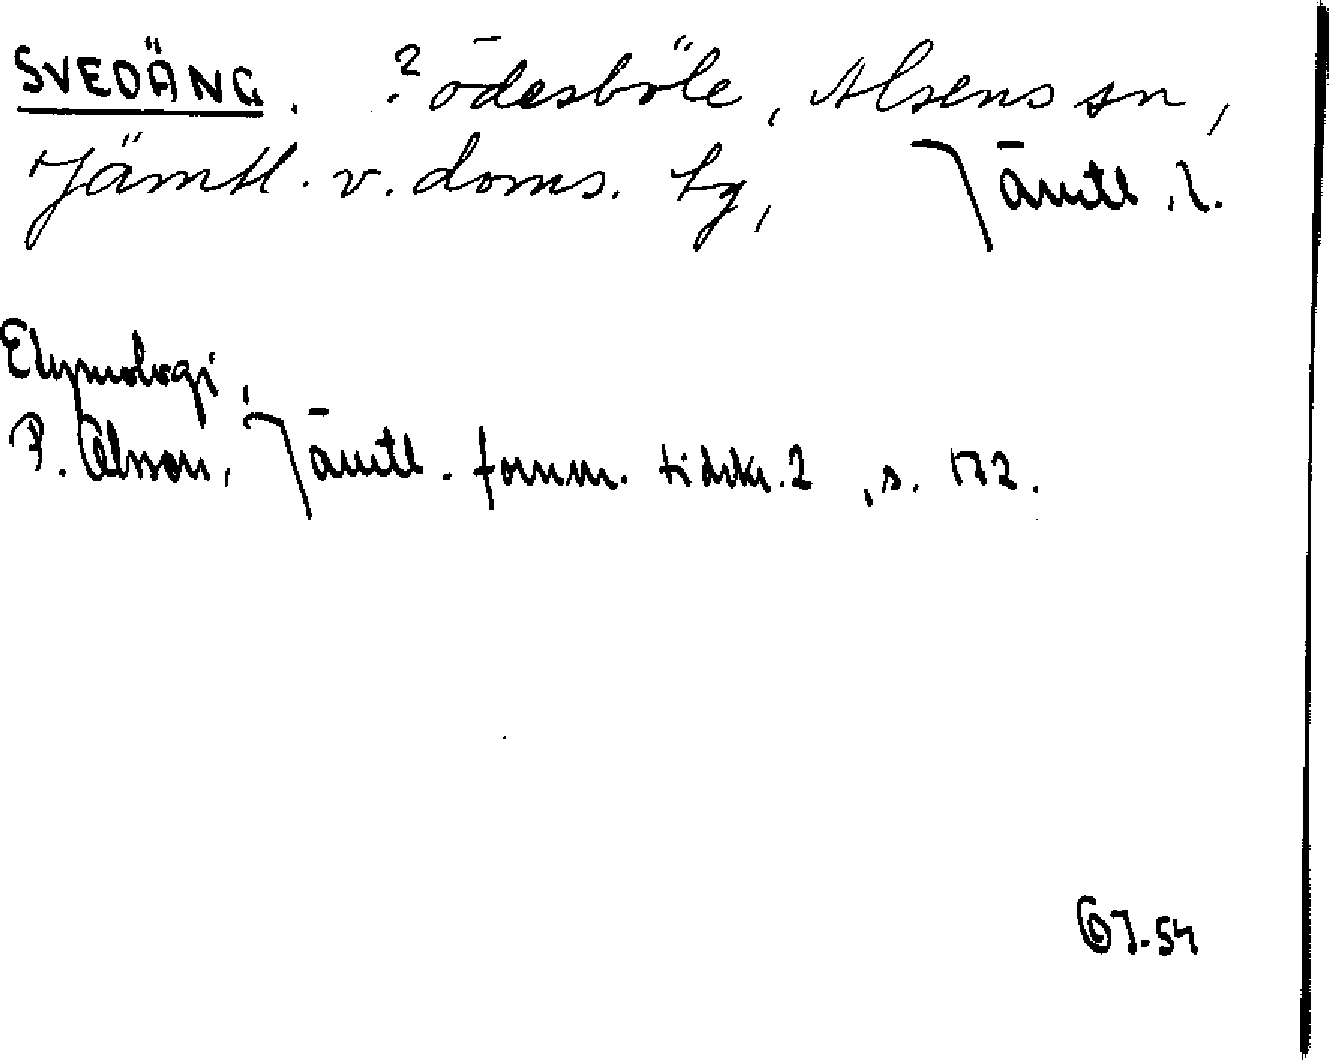 SVEDÄNG. ? Ödesböle, Alsens sn,
Jämtl. v. doms. tg, Jämtl. l.
Etymologi,
P. Olsson, Jämtl. fornm. tidskr. 2, s. 172.